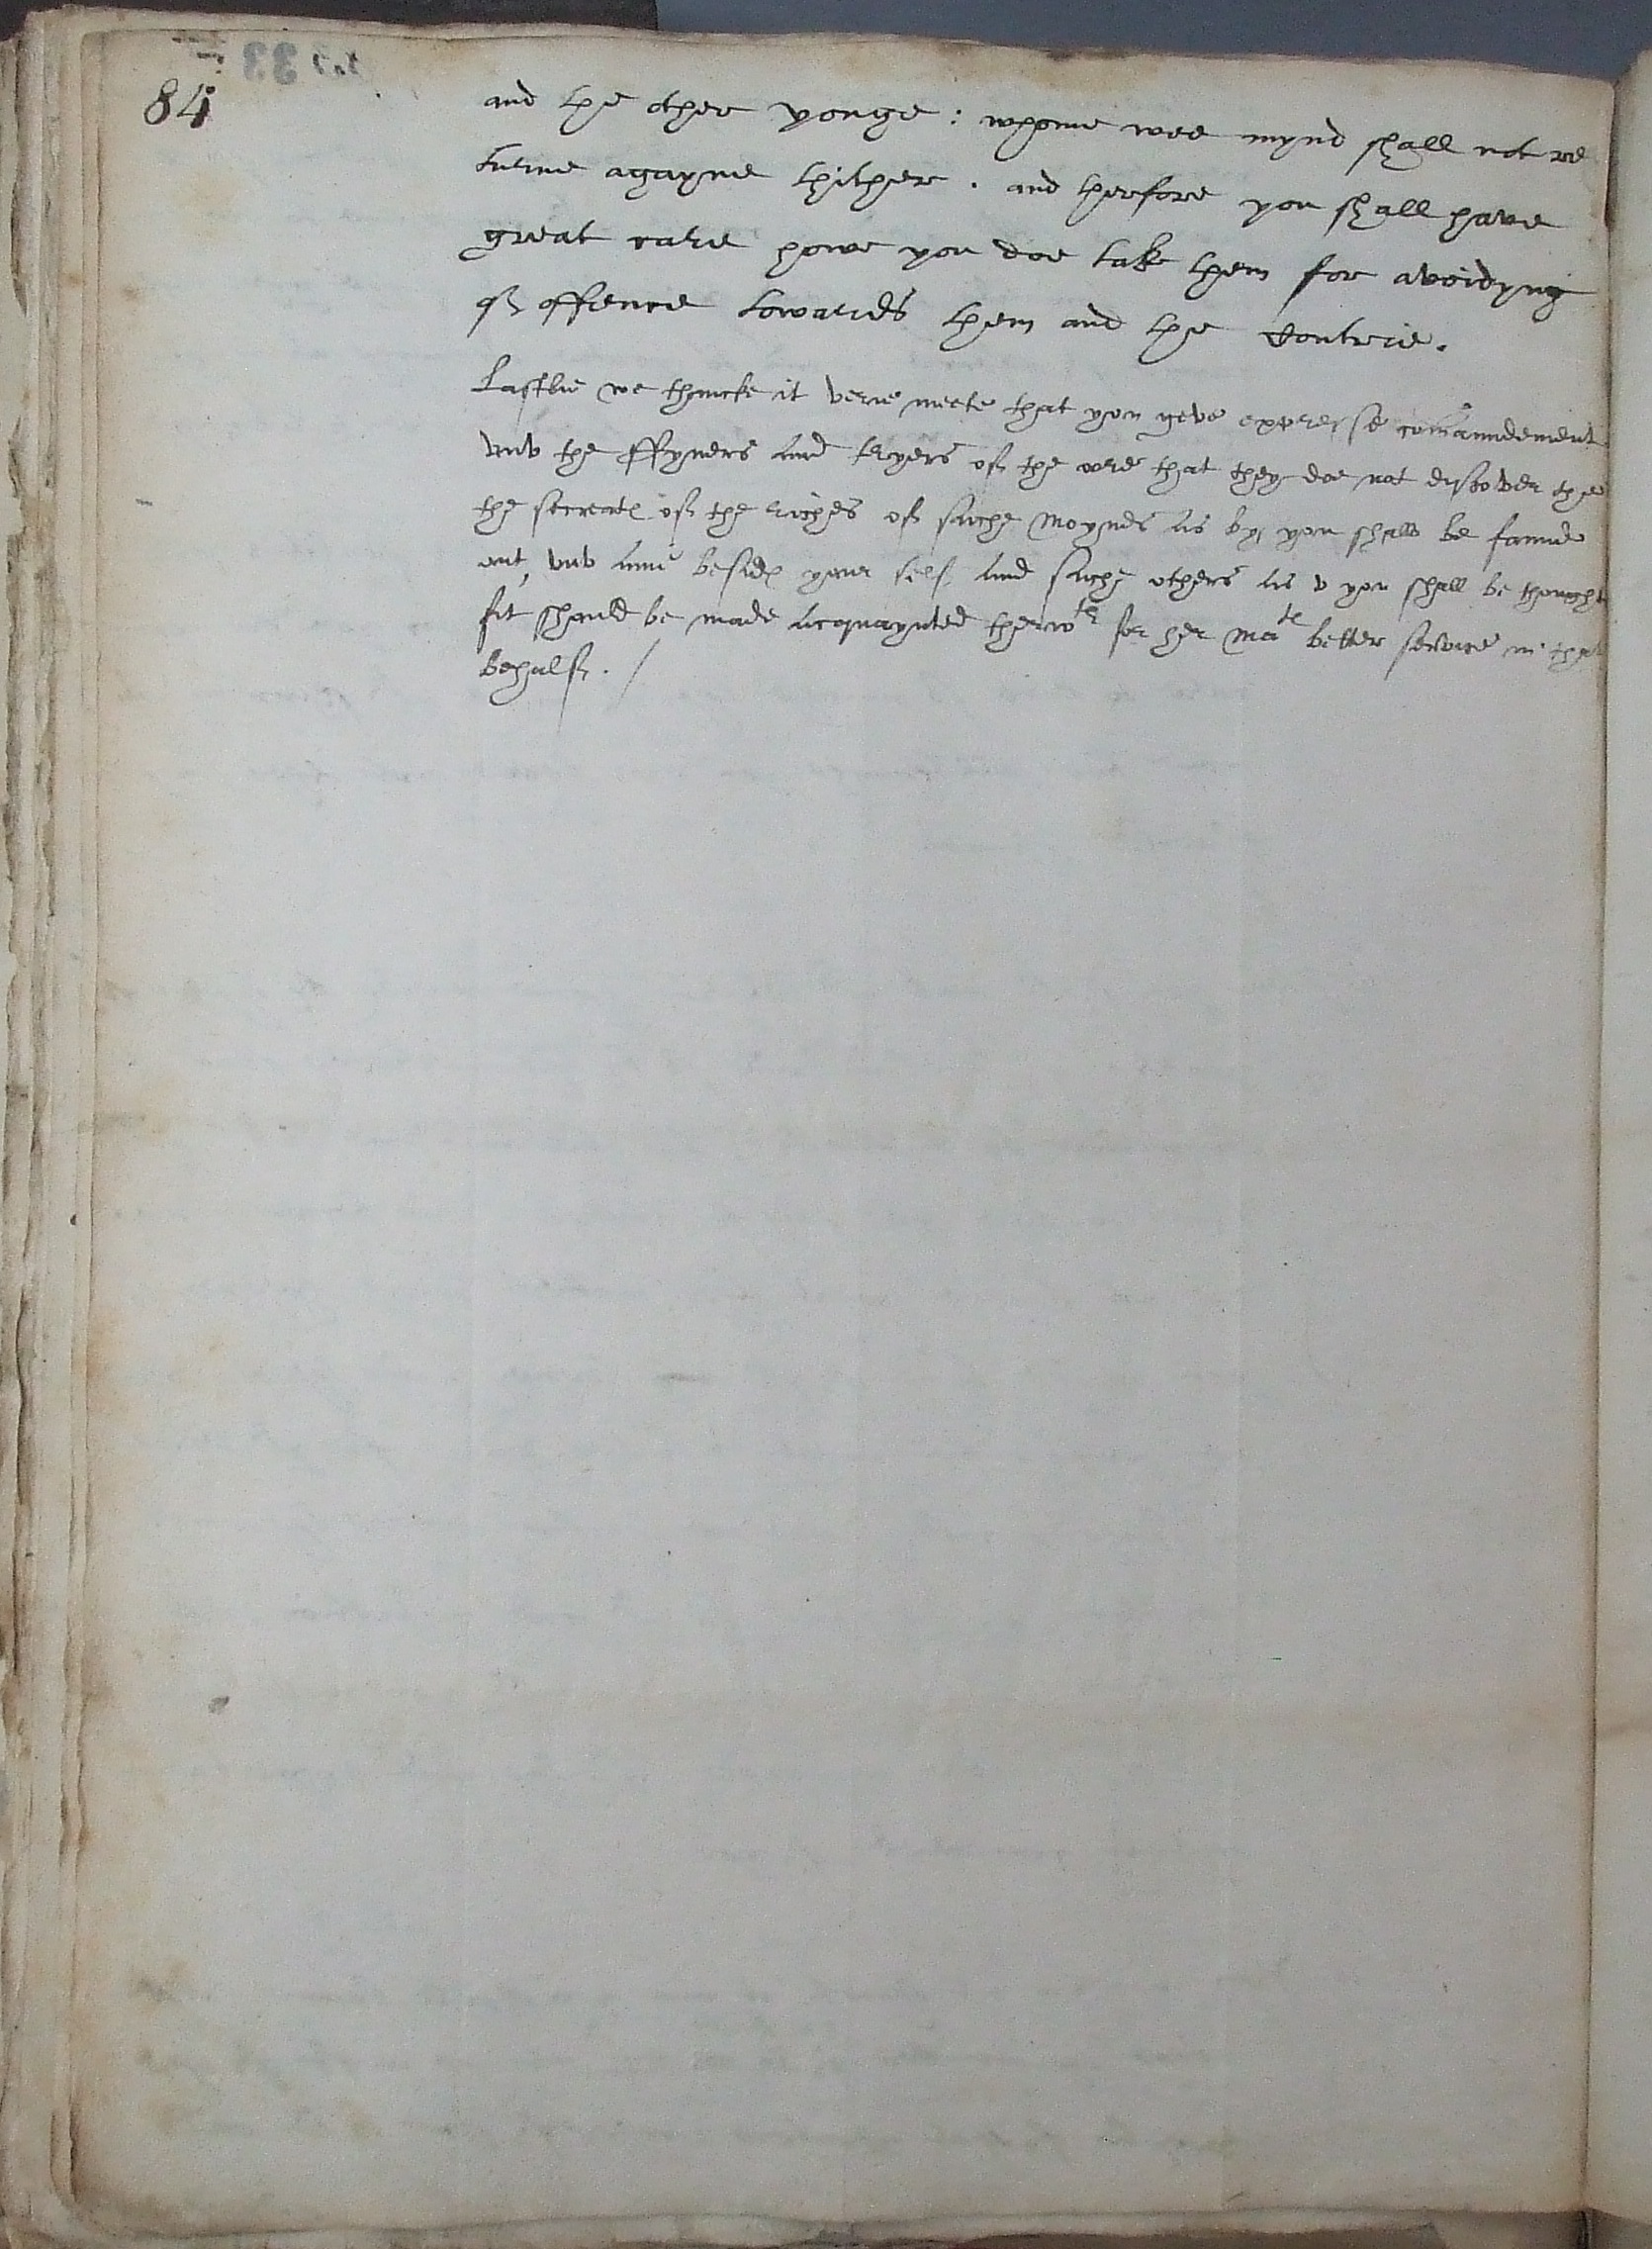 84
and the other yonge : whome wee mynd shall not re
turne agayne thither . and therfore you shall have
great care howe you doe take them for avoidyng
of offence towards them and the Contrie .
Lastlie we thincke it verie meete that you geve expresse comaundement
unto the ffyners and tryers of the ore that they doe not discover the
the secreats of the riches of suche moynes as by you shall be founde
out, unto anie besides your self and suche others as you shall be thought
fit should be made acquaynted therwth for her Mates better service in that
behalf . /